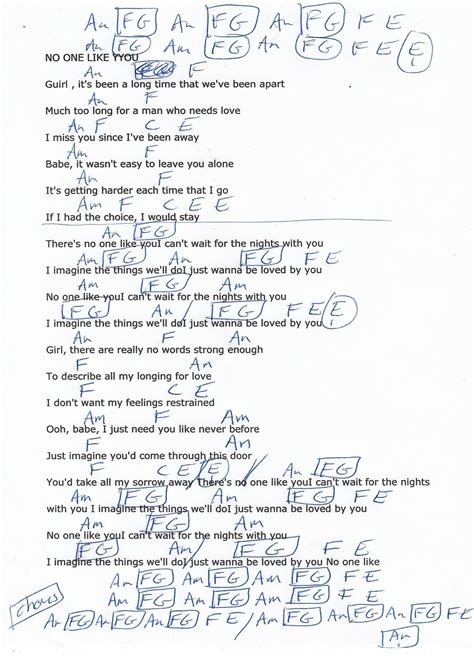 Am FG Am FG Am FG F E
Am FG Am FG Am FG F E E
NO ONE LIKE YYOU
Am F
Guirl , it's been a long time that we've been apart
Am F
Much too long for a man who needs love
Am F C E
I miss you since I've been away
Am F
Babe, it wasn't easy to leave you alone
Am F
It's getting harder each time that I go
Am F C E E
If I had the choice, I would stay
Am FG
There's no one like youI can't wait for the nights with you
Am FG Am FG F E
I imagine the things we'll doI just wanna be loved by you
Am FG Am
No one like youI can't wait for the nights with you
FG Am / FG F E E
I imagine the things we'll doI just wanna be loved by you
Am F Am
Girl, there are really no words strong enough
F
To describe all my longing for love
F C E
I don't want my feelings restrained
Am F Am
Ooh, babe, I just need you like never before
F Am
Just imagine you'd come through this door
F C E E Am FG
You'd take all my sorrow away There's no one like youI can't wait for the nights
Am FG Am FG F E
with you I imagine the things we'll doI just wanna be loved by you
Am FG Am
No one like youI can't wait for the nights with you
FG Am FG F E
I imagine the things we'll doI just wanna be loved by you No one like
Am FG Am FG Am FG F E
chorus Am FG Am FG Am FG F E
Am FG Am FG Am FG F E / Am FG Am FG Am FG F E
Am